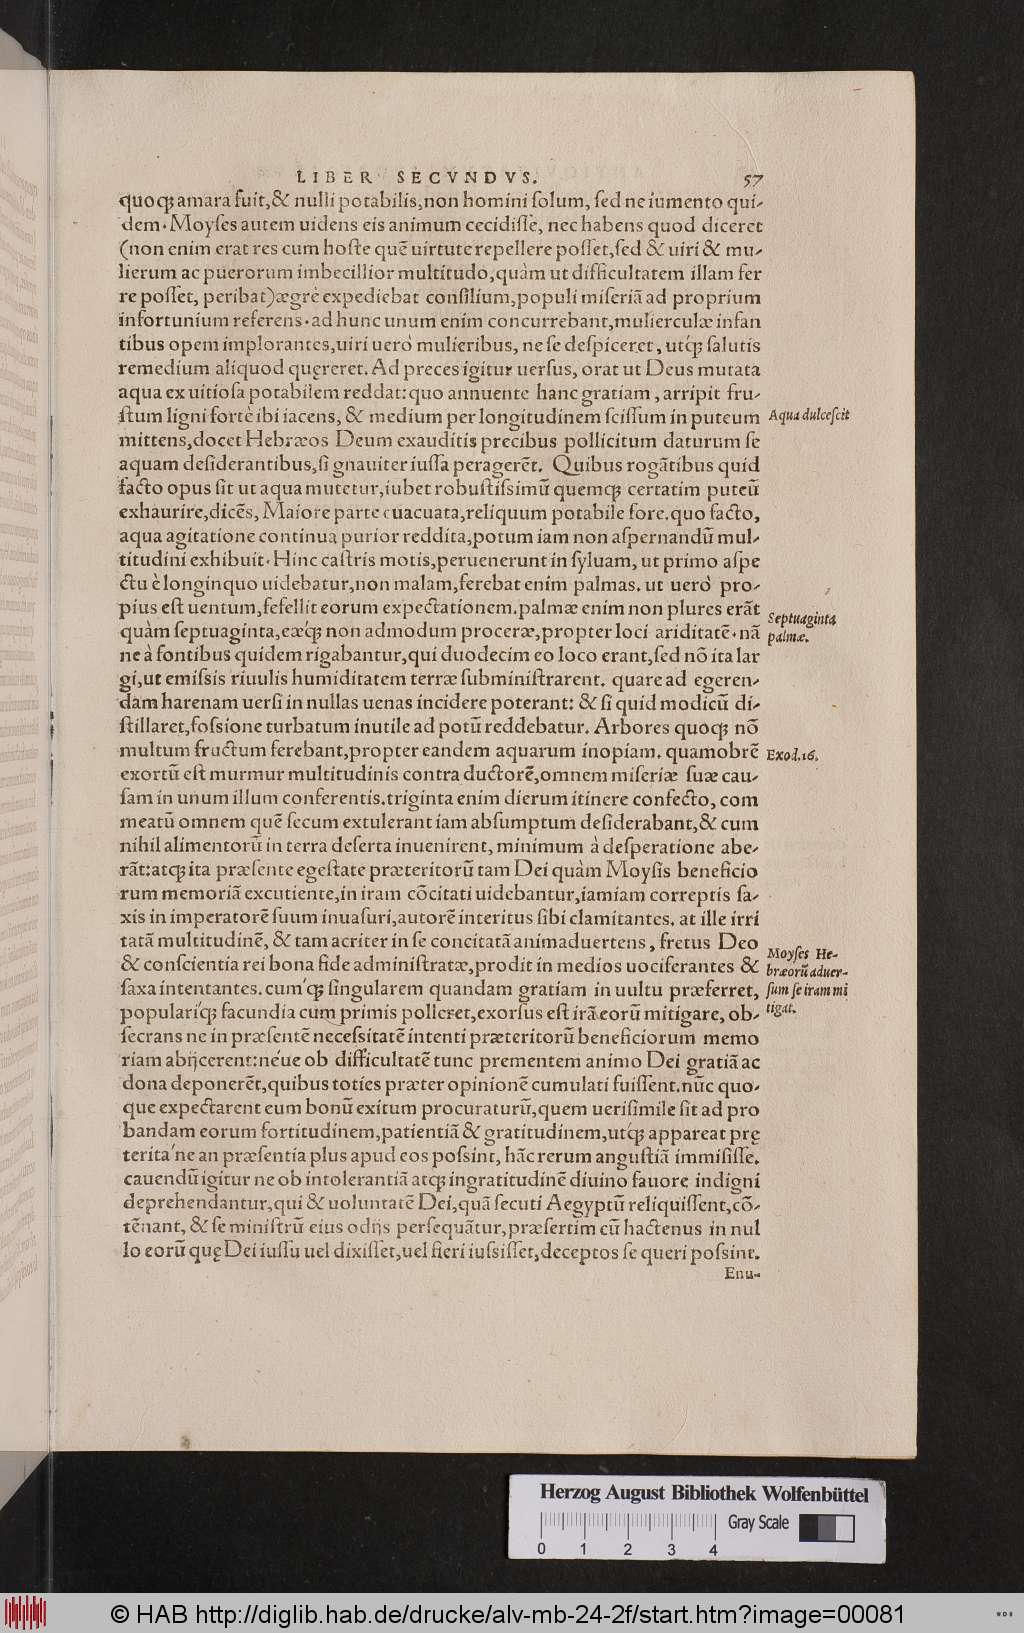 LIBER SECVNDVS. 57
quoqꝫ amara fuit,& nulli potabilis,non homini ſolum, ſed ne iumento qui-
dem. Moyſes autem uidens eis animum cecidiſſe, nec habens quod diceret
(non enim erat res cum hoſte quē uirtute repellere poſſet,ſed & uiri & mu-
lierum ac puerorum imbecillior multitudo,quàm ut difficultatem illam fer
re poſſet, peribat)ægrè expediebat conſilium,populi miſeriā ad proprium
infortunium referens. ad hunc unum enim concurrebant,mulierculæ infan
tibus opem implorantes,uiri uerò mulieribus, ne ſe deſpiceret, utqꝫ́ ſalutis
remedium aliquod quęreret. Ad preces igitur uerſus, orat ut Deus mutata
aqua ex uitioſa potabilem reddat: quo annuente hanc gratiam, arripit fru-
ſtum ligni fortè ibi iacens, & medium per longitudinem ſciſſum in puteum
Aqua dulceſcit
mittens,docet Hebræos Deum exauditis precibus pollicitum daturum ſe
aquam deſiderantibus,ſi gnauiter iuſſa peragerēt. Quibus rogātibus quid
facto opus ſit ut aqua mutetur,iubet robuſtiſſimū quemqꝫ certatim puteū
exhaurire,dicēs, Maiore parte euacuata,reliquum potabile fore. quo facto,
aqua agitatione continua purior reddita,potum iam non aſpernandū mul-
titudini exhibuit. Hinc caſtris motis,peruenerunt in ſyluam, ut primo aſpe
ctu è longinquo uidebatur,non malam,ferebat enim palmas. ut uerò pro-
pius eſt uentum,fefellit eorum expectationem. palmæ enim non plures erāt
Septuaginta
palmæ.
quàm ſeptuaginta,eæqꝫ́ non admodum proceræ,propter loci ariditatē. nā
ne à fontibus quidem rigabantur,qui duodecim eo loco erant,ſed nō ita lar
gi,ut emiſsis riuulis humiditatem terræ ſubminiſtrarent. quare ad egeren-
dam harenam uerſi in nullas uenas incidere poterant: & ſi quid modicū di-
ſtillaret,foſsione turbatum inutile ad potū reddebatur. Arbores quoqꝫ nō
multum fructum ferebant,propter eandem aquarum inopiam. quamobrē
Exod.16.
exortū eſt murmur multitudinis contra ductorē,omnem miſeriæ ſuæ cau-
ſam in unum illum conferentis. triginta enim dierum itinere confecto, com
meatū omnem quē ſecum extulerant iam abſumptum deſiderabant,& cum
nihil alimentorū in terra deſerta inuenirent, minimum à deſperatione abe-
rāt: atqꝫ ita præſente egeſtate præteritorū tam Dei quàm Moyſis beneficio
rum memoriā excutiente,in iram cōcitati uidebantur,iamiam correptis ſa-
xis in imperatorē ſuum inuaſuri,autorē interitus ſibi clamitantes. at ille irri
tatā multitudinē, & tam acriter in ſe concitatā animaduertens, fretus Deo
& conſcientia rei bona fide adminiſtratæ,prodit in medios uociferantes &
ſaxa intentantes. cumqꝫ́ ſingularem quandam gratiam in uultu præferret,
Moyſes He-
bræorū aduer-
ſum ſe iram mi
tigat.
populariqꝫ́ facundia cum primis polleret,exorſus eſt irā eorū mitigare, ob-
ſecrans ne in præſentē neceſsitatē intenti præteritorū beneficiorum memo
riam abijcerent: néue ob difficultatē tunc prementem animo Dei gratiā ac
dona deponerēt,quibus toties præter opinionē cumulati fuiſſent. nūc quo-
que expectarent eum bonū exitum procuraturū,quem ueriſimile ſit ad pro
bandam eorum fortitudinem,patientiā & gratitudinem,utqꝫ́ appareat prę
terita ́ne an præſentia plus apud eos poſsint, hāc rerum anguſtiā immiſiſſe.
cauendū igitur ne ob intolerantiā atqꝫ ingratitudinē diuino fauore indigni
deprehendantur,qui & uoluntatē Dei,quā ſecuti Aegyptū reliquiſſent,cō-
tēnant, & ſe miniſtrū eius odijs perſequātur,præſertim cū hactenus in nul
lo eorū quę Dei iuſſu uel dixiſſet,uel fieri iuſsiſſet,deceptos ſe queri poſsint.
Enu-
Herzog August Bibliothek Wolfenbüttel
Gray Scale
0 1 2 3 4
© HAB http://diglib.hab.de/drucke/alv-mb-24-2f/start.htm?image=00081